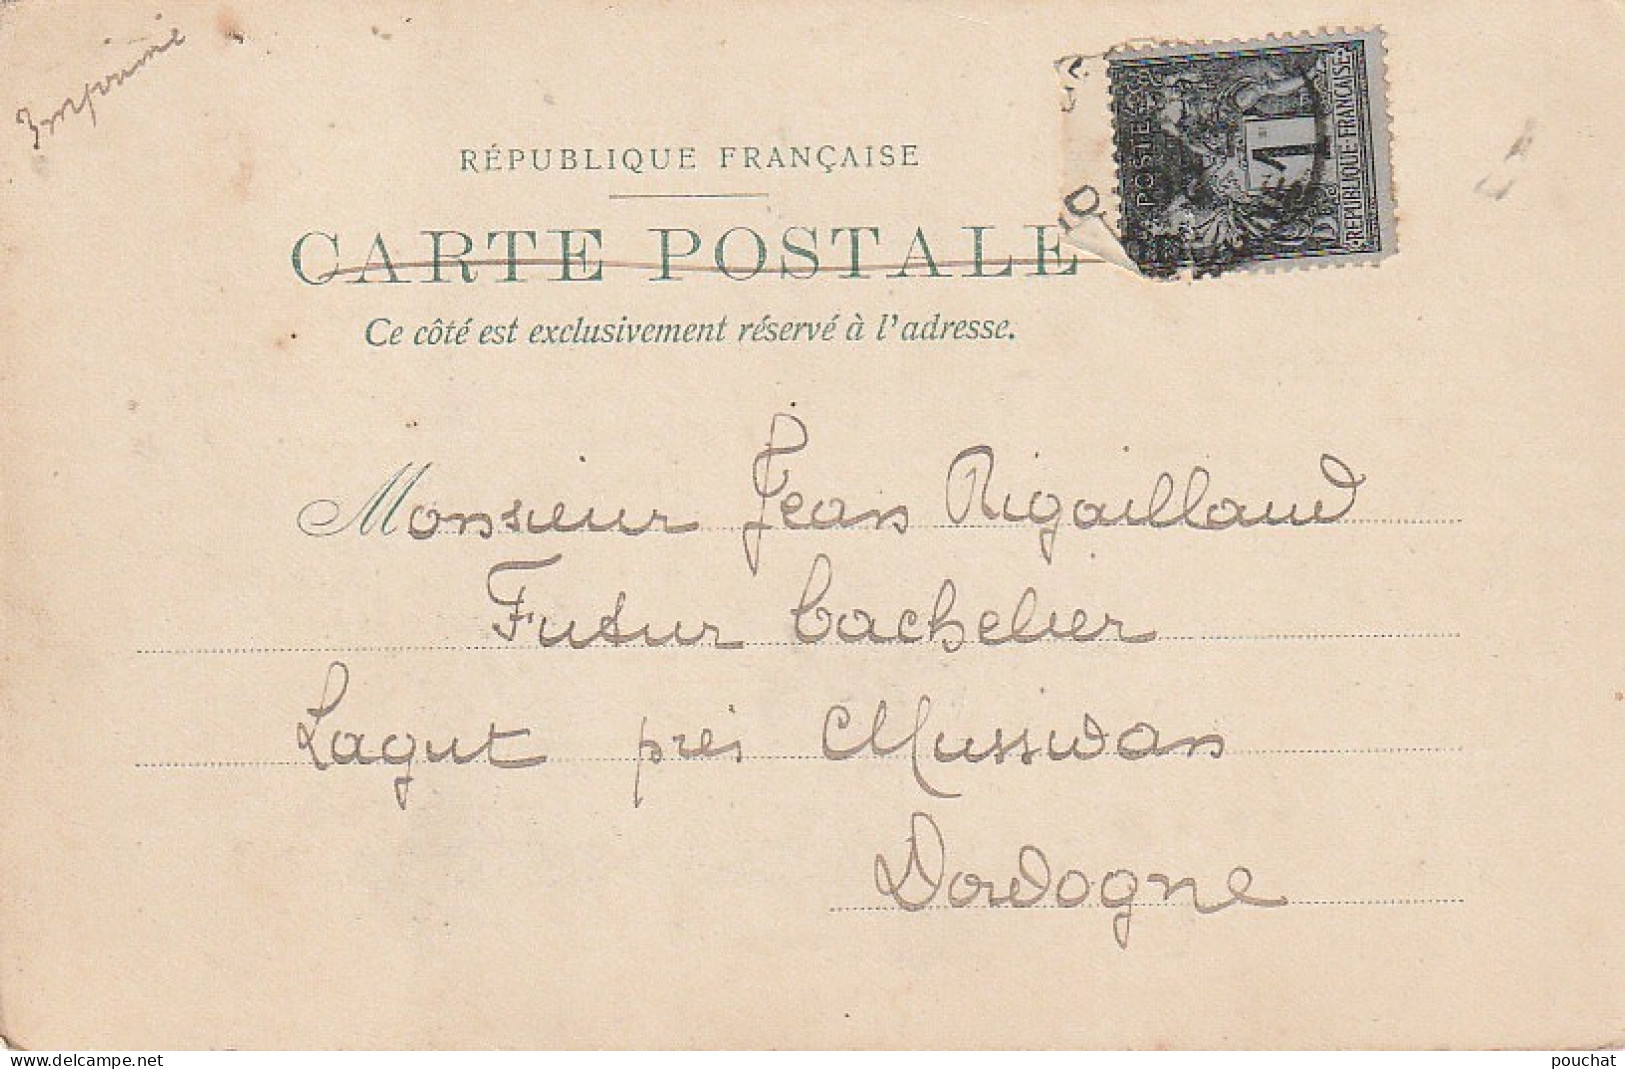 Imprimé
RÉPUBLIQUE FRANÇAISE
CARTE POSTALE
Ce côté est exclusivement réservé à l'adresse.
POSTES
1
REPUBLIQUE·FRANÇAISE
Monsieur Jean Rigaillaud
Futur bachelier
Lagut près Mussidan
Dordogne
delcampe.net
pouchat